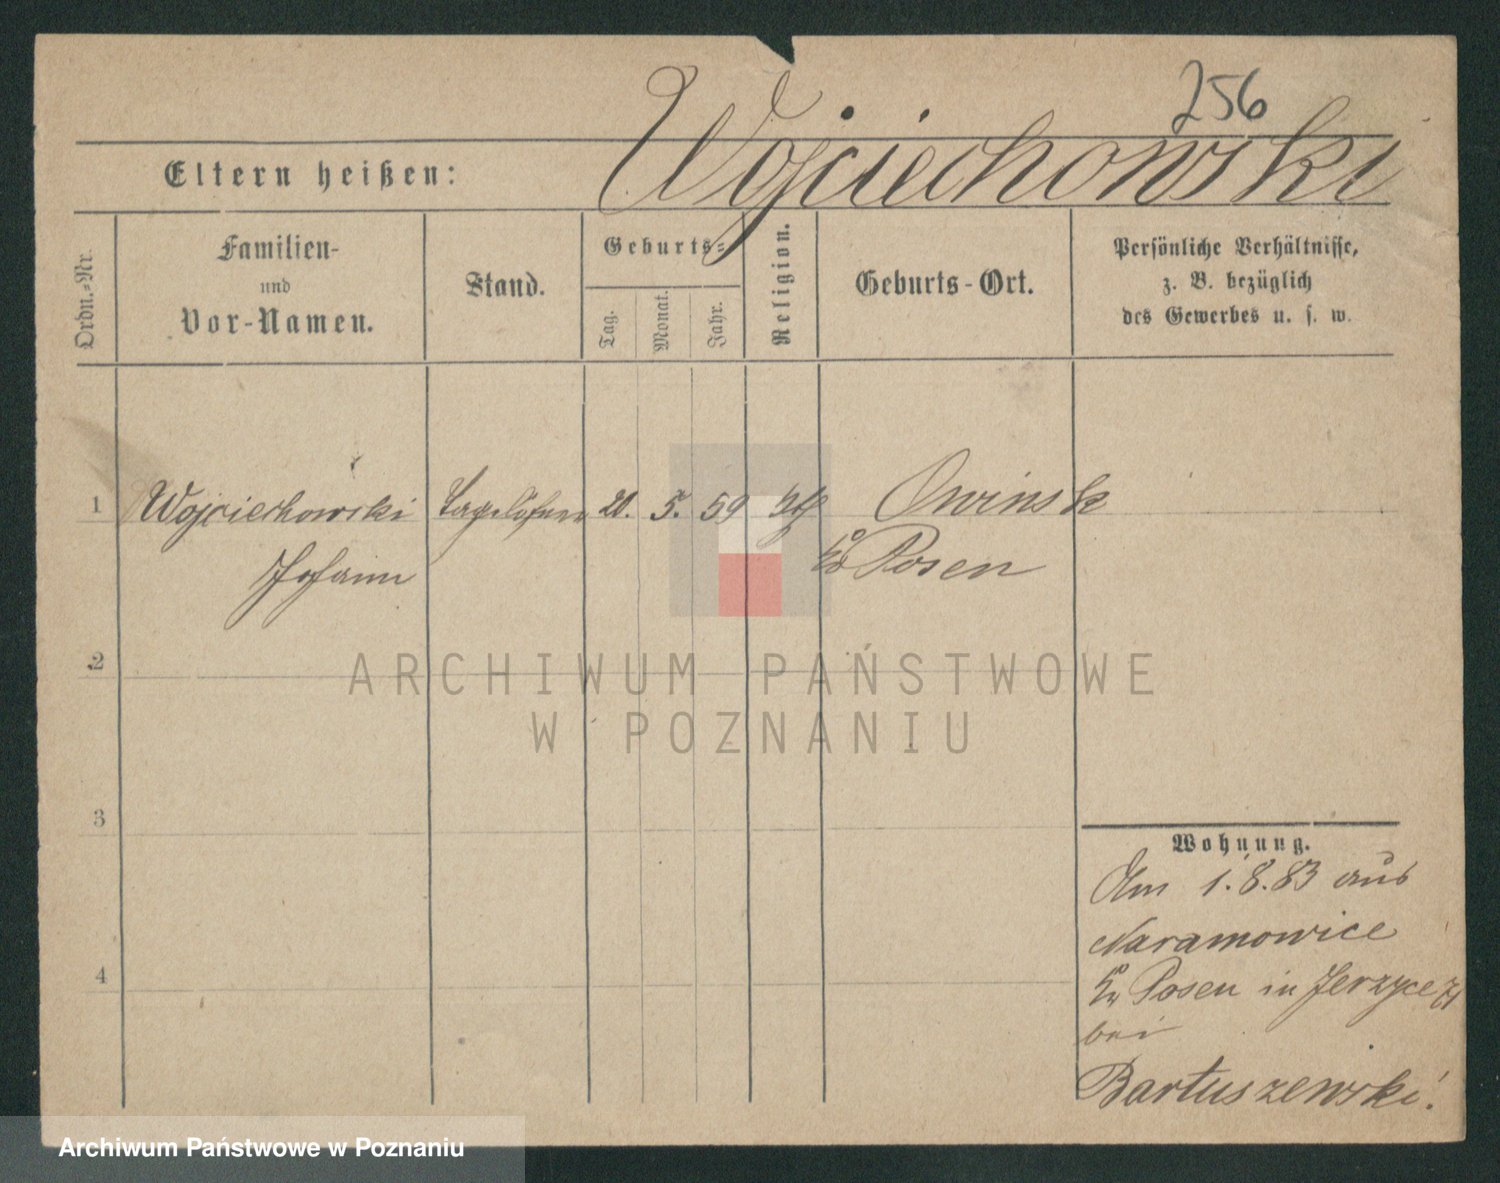 256
Wojciechowski
Eltern heißen:
Ordn.-Nr.
Familien-
und
Vor-Namen.
Stand.
Geburts-
Tag.
Monat.
Jahr.
Religion.
Geburts-Ort.
Persönliche Verhältnisse,
z. B. bezüglich
des Gewerbes u. s. w.
1 Wojciechowski Tagelöhner 20. 5. 59 Owinsk
Johann Posen
2
3
4
ARCHIWUM PAŃSTWOWE
W POZNANIU
Wohnung.
Am 1.8.83 aus
Naramowice
Posen in Jerzyce
bei
Bartuszewski.
Archiwum Państwowe w Poznaniu